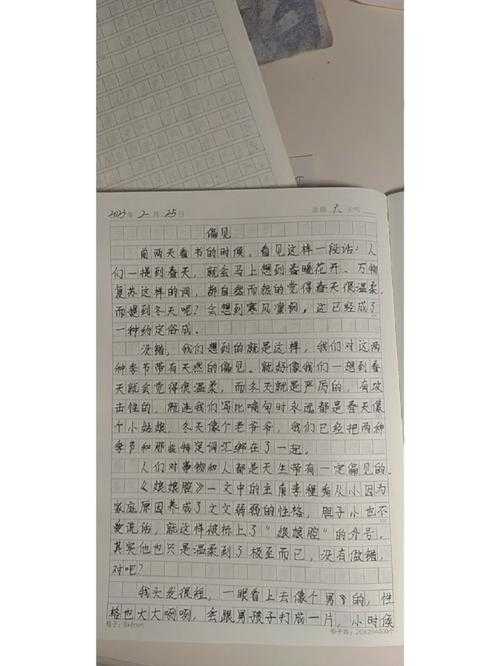 2023年2月25日 星期六 天气
偏见
前两天看书的时候，看见这样一段话：人
们一提到春天，就会马上想到春暖花开、万物
复苏这样的词，都自然而然的觉得春天很温柔，
而想到冬天呢？会想到寒风凛冽，这已经成了
一种约定俗成。
没错，我们想到的就是这样，我们对这两
种季节带有天然的偏见。就好像我们一想到春
天就会觉得很温柔，而冬天就是严厉的，有攻
击性的，就连我们写比喻句时永远都是春天像
个小姑娘，冬天像个老爷爷，我们已经把两种
季节和那些特定词汇绑在了一起。
人们对事物和人都是天生带有一定偏见的。
《娘娘腔》一文中的主角李程秀从小因为
家庭原因养成了文文弱弱的性格，胆子小也不
爱说话，就这样被标上了“娘娘腔”的外号，
其实他也只是温柔到了极至而已，没有做错，
对吧？
我头发很短，一眼看上去像个男的，性
格也大大咧咧，会跟男孩子打成一片，小时候